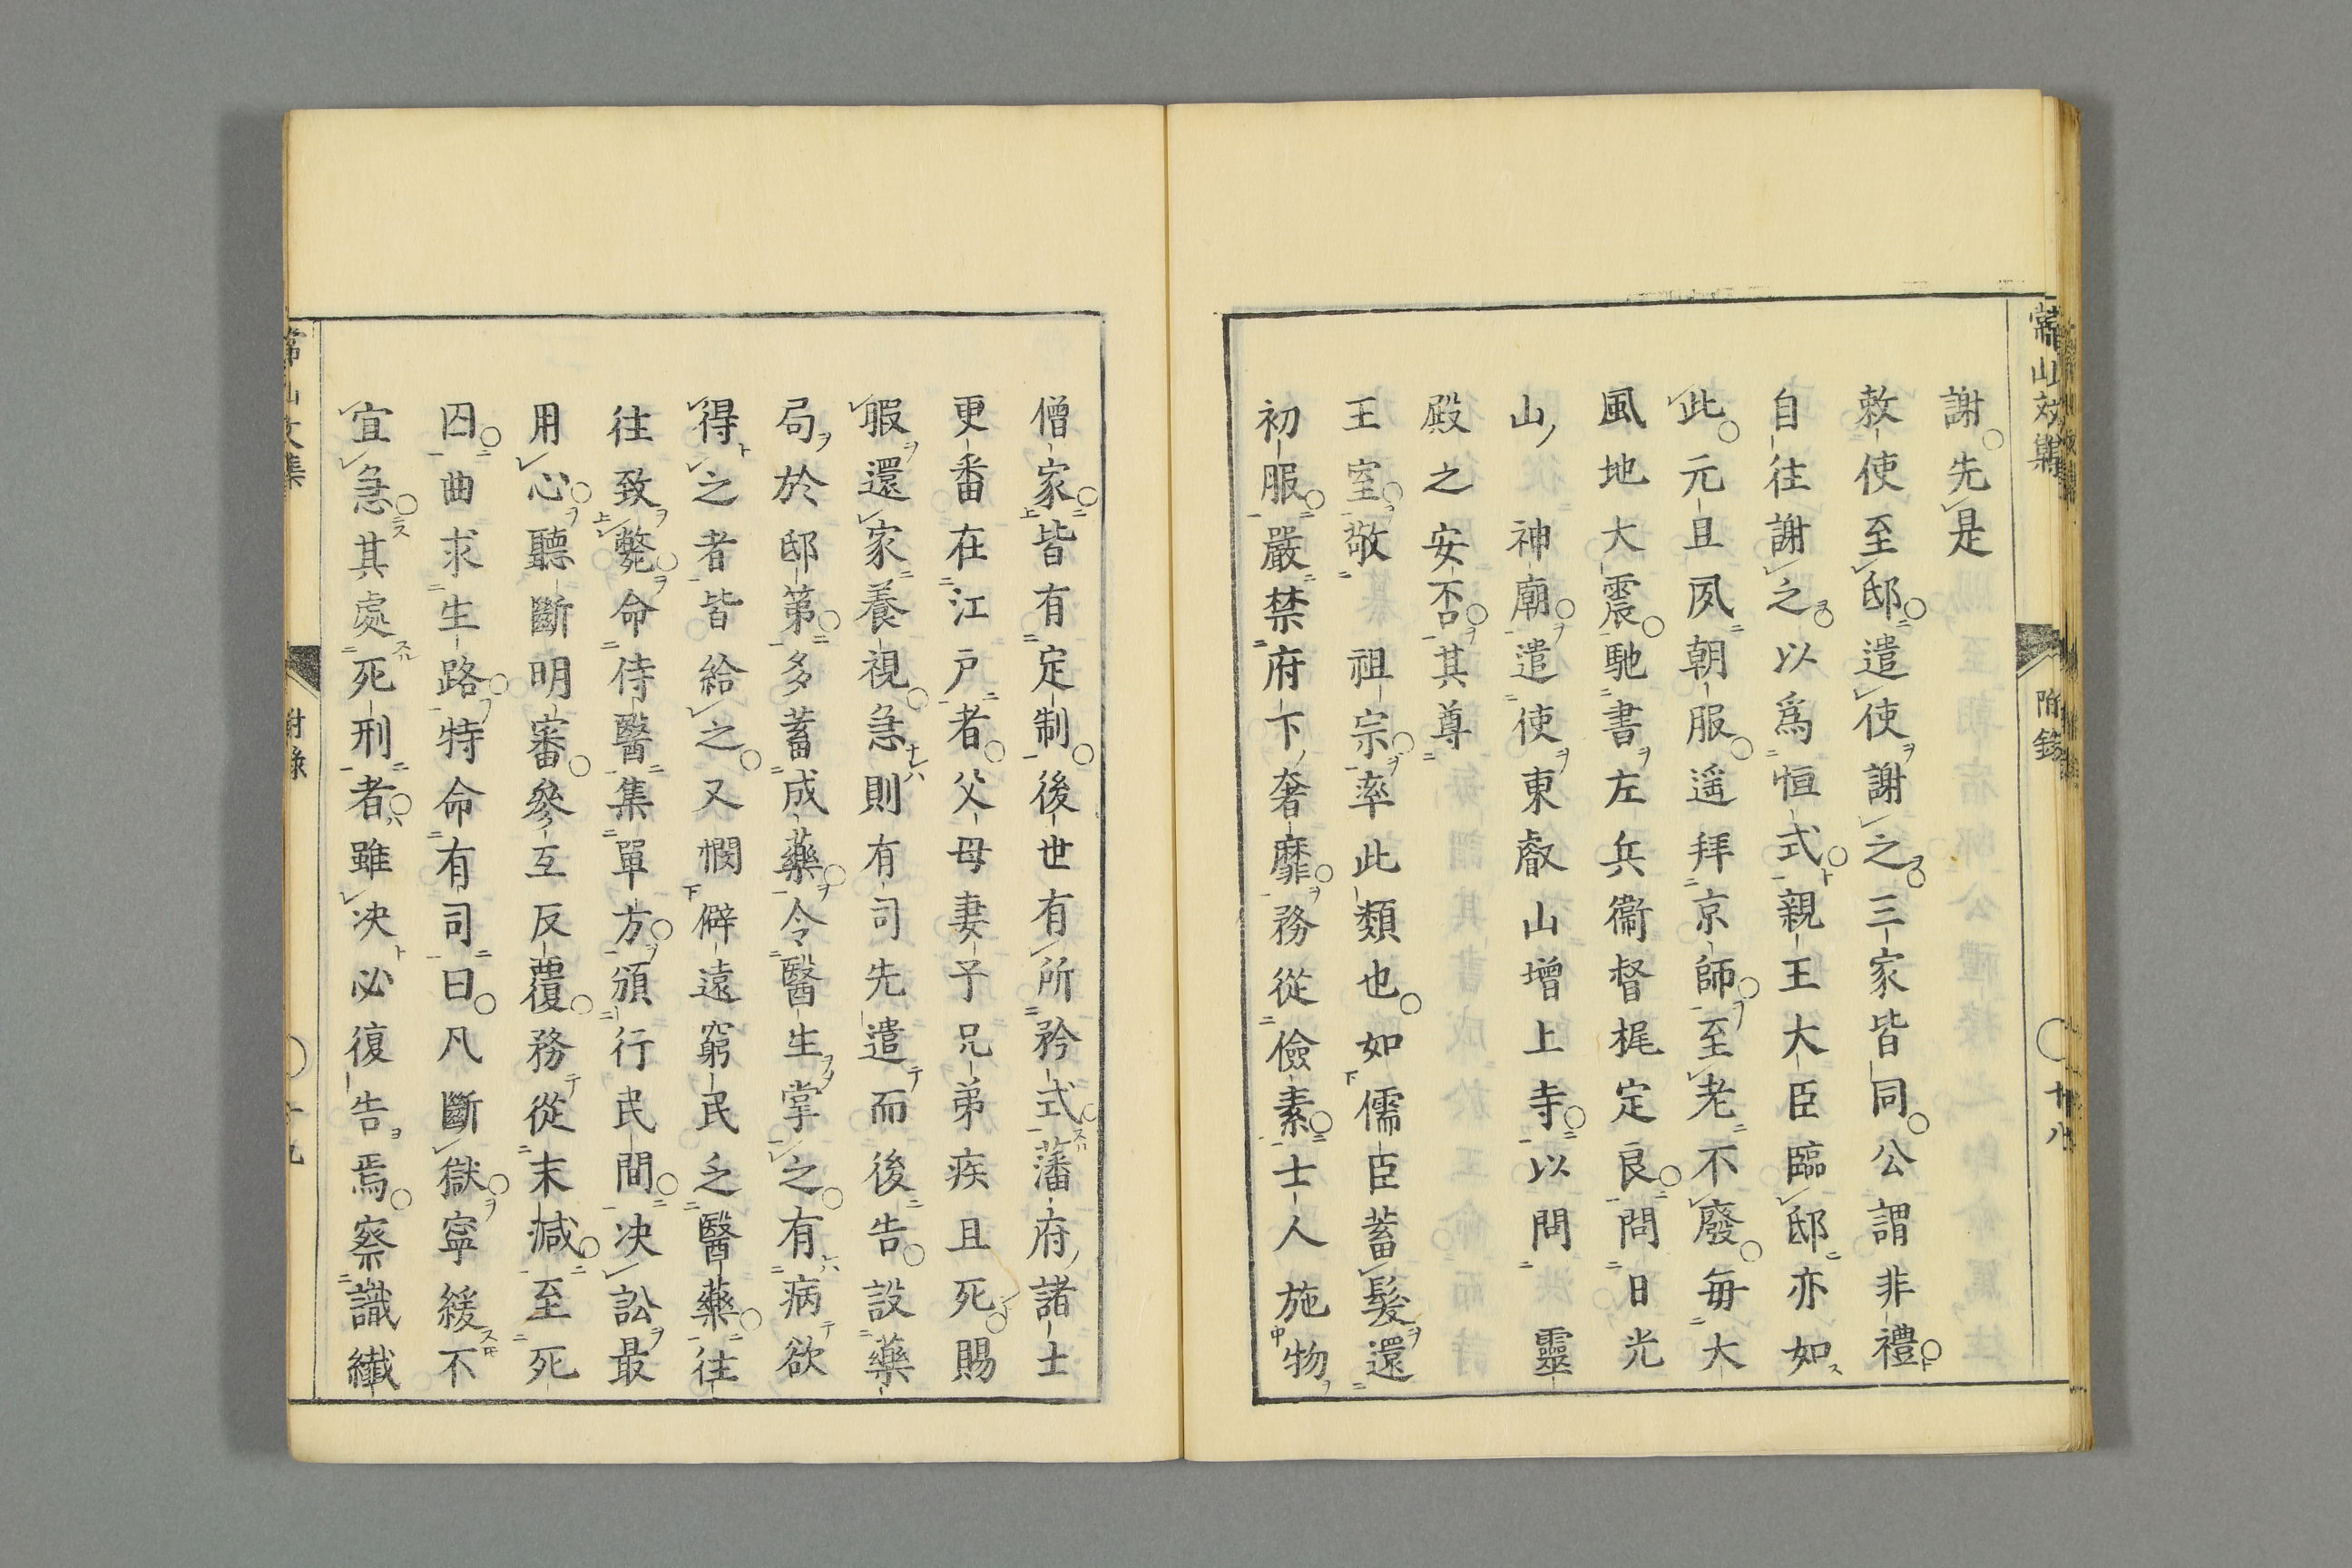 常山文集 附録 十八
謝先是
敕使至邸遣使謝之三家皆同公謂非禮
自往謝之以爲恒式親王大臣臨邸亦如
此元旦夙朝服遥拜京師至老不廢毎大
風地大震馳書左兵衞督梶定良問日光
山神廟遣使東叡山增上寺以問靈
殿之安否其尊
王室敬祖宗率此類也如儒臣蓄髮還
初服嚴禁府下奢靡務從儉素士人施物
僧家皆有定制後世有所矜式藩府諸士
更番在江戸者父母妻子兄弟疾且死賜
暇還家養視急則有司先遣而後告設藥
局於邸第多蓄成藥令醫生掌之有病欲
得之者皆給之又憫僻遠窮民乏醫藥往
往致斃命侍醫集單方頒行民間决訟最
用心聽斷明審參互反覆務從末減至死
囚曲求生路特命有司曰凡斷獄寧緩不
宜急其處死刑者雖决必復告焉察識纖
常山文集 附録 十九